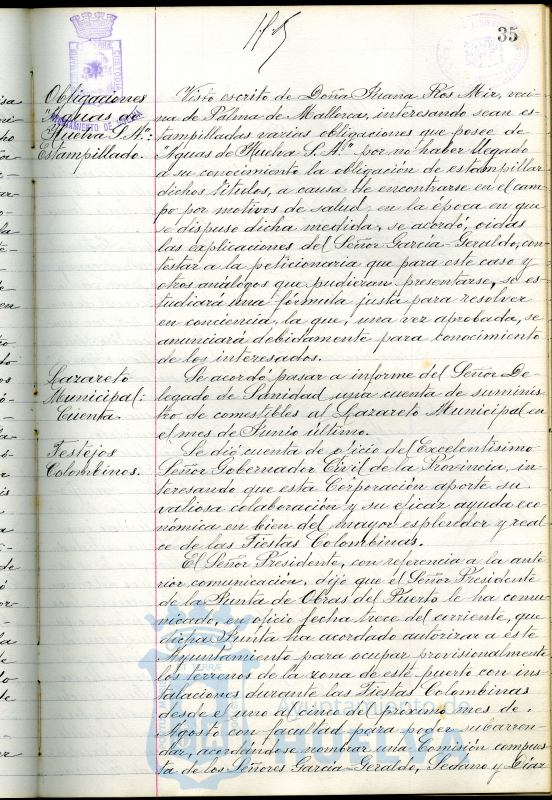 35
Obligaciones
"Aguas de
Huelva S.A.":
Estampillado.
Visto escrito de Doña Juana Ros Mir, veci-
na de Palma de Mallorca, interesando sean es-
tampilladas varias obligaciones que posee de
"Aguas de Huelva S. A." por no haber llegado
a su conocimiento la obligación de estampillar
dichos títulos, a causa de encontrarse en el cam-
po por motivos de salud, en la época en que
se dispuso dicha medida, se acordó, oidas
las explicaciones del Señor García-Geraldo, con-
testar a la peticionaria que para este caso y
otros análogos que pudieran presentarse, se es-
tudiará una fórmula justa para resolver
en conciencia, la que, una vez aprobada, se
anunciará debidamente para conocimiento
de los interesados.
Lazareto
Municipal:
Cuenta.
Se acordó pasar a informe del Señor De-
legado de Sanidad una cuenta de suminis-
tro de comestibles al Lazareto Municipal en
el mes de Junio último.
Festejos
Colombinos.
Se dió cuenta de oficio del Excelentísimo
Señor Gobernador Civil de la Provincia, in-
teresando que esta Corporación aporte su
valiosa colaboración y su eficaz ayuda eco-
nómica en bien del mayor esplendor y real-
ce de las Fiestas Colombinas.
El Señor Presidente, con referencia a la ante
rior comunicación, dijo que el Señor Presidente
de la Junta de Obras del Puerto le ha comu-
nicado, en oficio fecha trece del corriente, que
dicha Junta ha acordado autorizar a este
Ayuntamiento para ocupar provisionalmente
los terrenos de la zona de este puerto con ins-
talaciones durante las Fiestas Colombinas
desde el uno al cinco del próximo mes de
Agosto con facultad para poder subarren-
dar, acordándose nombrar una Comisión compues-
ta de los Señores García-Geraldo, Sedano y Díaz
Ayuntamiento de
HUELVA